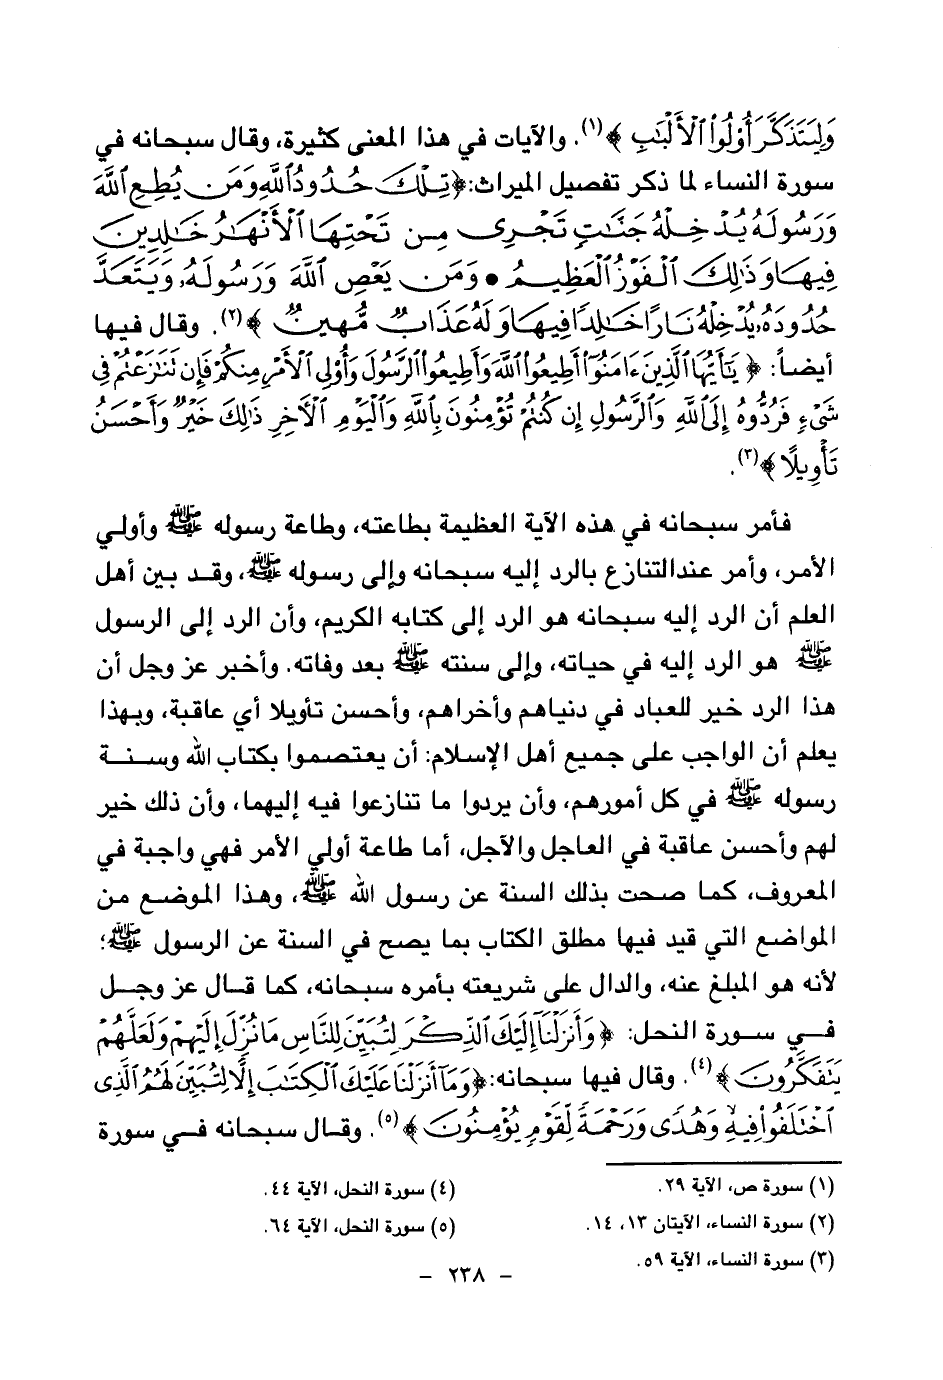 وَلِيَتَذَكَّرَ أُوْلُوا۟ ٱلْأَلْبَٰبِ ﴾(١). والآيات في هذا المعنى كثيرة، وقال سبحانه في
سورة النساء لما ذكر تفصيل الميراث:﴿ تِلْكَ حُدُودُ ٱللَّهِ وَمَن يُطِعِ ٱللَّهَ
وَرَسُولَهُۥ يُدْخِلْهُ جَنَّٰتٍ تَجْرِى مِن تَحْتِهَا ٱلْأَنْهَٰرُ خَٰلِدِينَ
فِيهَا وَذَٰلِكَ ٱلْفَوْزُ ٱلْعَظِيمُ • وَمَن يَعْصِ ٱللَّهَ وَرَسُولَهُۥ وَيَتَعَدَّ
حُدُودَهُۥ يُدْخِلْهُ نَارًا خَٰلِدًا فِيهَا وَلَهُۥ عَذَابٌ مُّهِينٌ ﴾(٢). وقال فيها
أيضاً: ﴿ يَٰٓأَيُّهَا ٱلَّذِينَ ءَامَنُوٓا۟ أَطِيعُوا۟ ٱللَّهَ وَأَطِيعُوا۟ ٱلرَّسُولَ وَأُوْلِى ٱلْأَمْرِ مِنكُمْ فَإِن تَنَٰزَعْتُمْ فِى
شَىْءٍ فَرُدُّوهُ إِلَى ٱللَّهِ وَٱلرَّسُولِ إِن كُنتُمْ تُؤْمِنُونَ بِٱللَّهِ وَٱلْيَوْمِ ٱلْأَخِرِ ذَٰلِكَ خَيْرٌ وَأَحْسَنُ
تَأْوِيلًا ﴾(٣).
فأمر سبحانه في هذه الآية العظيمة بطاعته، وطاعة رسوله ﷺ وأولي
الأمر، وأمر عندالتنازع بالرد إليه سبحانه وإلى رسوله ﷺ، وقد بين أهل
العلم أن الرد إليه سبحانه هو الرد إلى كتابه الكريم، وأن الرد إلى الرسول
ﷺ هو الرد إليه في حياته، وإلى سنته ﷺ بعد وفاته. وأخبر عز وجل أن
هذا الرد خير للعباد في دنياهم وأخراهم، وأحسن تأويلا أي عاقبة، وبهذا
يعلم أن الواجب على جميع أهل الإسلام: أن يعتصموا بكتاب الله وسنة
رسوله ﷺ في كل أمورهم، وأن يردوا ما تنازعوا فيه إليهما، وأن ذلك خير
لهم وأحسن عاقبة في العاجل والآجل، أما طاعة أولي الأمر فهي واجبة في
المعروف، كما صحت بذلك السنة عن رسول الله ﷺ، وهذا الموضع من
المواضع التي قيد فيها مطلق الكتاب بما يصح في السنة عن الرسول ﷺ؛
لأنه هو المبلغ عنه، والدال على شريعته بأمره سبحانه، كما قال عز وجل
في سورة النحل: ﴿ وَأَنزَلْنَآ إِلَيْكَ ٱلذِّكْرَ لِتُبَيِّنَ لِلنَّاسِ مَا نُزِّلَ إِلَيْهِمْ وَلَعَلَّهُمْ
يَتَفَكَّرُونَ ﴾(٤). وقال فيها سبحانه:﴿ وَمَآ أَنزَلْنَا عَلَيْكَ ٱلْكِتَٰبَ إِلَّا لِتُبَيِّنَ لَهُمُ ٱلَّذِى
ٱخْتَلَفُوا۟ فِيهِ وَهُدًى وَرَحْمَةً لِّقَوْمٍ يُؤْمِنُونَ ﴾(٥). وقال سبحانه في سورة
(١) سورة ص، الآية ٢٩.
(٢) سورة النساء، الآيتان ١٣، ١٤.
(٣) سورة النساء، الآية ٥٩.
(٤) سورة النحل، الآية ٤٤.
(٥) سورة النحل، الآية ٦٤.
- ٢٣٨ -